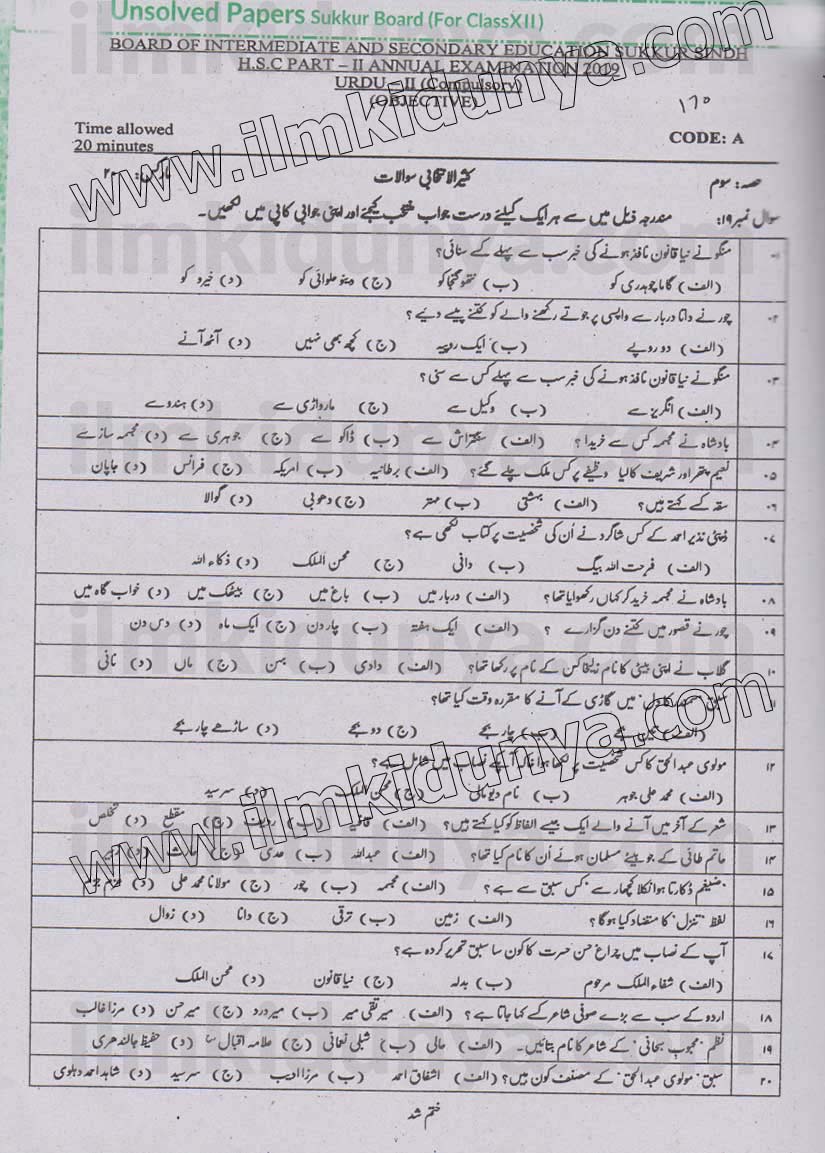 Unsolved Papers Sukkur Board (For ClassXII)
BOARD OF INTERMEDIATE AND SECONDARY EDUCATION SUKKUR SINDH
H.S.C PART – II ANNUAL EXAMINATION 2019
URDU – II (Compulsory)
(OBJECTIVE)
Time allowed
20 minutes
CODE: A
حصہ: سوم کثیر الانتخابی سوالات مارکس: ۲۰
سوال نمبر ۱۹: مندرجہ ذیل میں سے ہر ایک کیلئے درست جواب منتخب کیجئے اور اپنی جوابی کاپی میں لکھیں۔
۰۱ منگو نے نیا قانون نافذ ہونے کی خبر سب سے پہلے کسے سنائی؟
(الف) گاما چوہدری کو (ب) نتھو گنجا کو (ج) دینو حلوائی کو (د) خیرو کو
۰۲ چور نے داتا دربار سے واپسی پر جوتے رکھنے والے کو کتنے پیسے دیے؟
(الف) دو روپے (ب) ایک روپیہ (ج) کچھ بھی نہیں (د) آٹھ آنے
۰۳ منگو نے نیا قانون نافذ ہونے کی خبر سب سے پہلے کس سے سنی؟
(الف) انگریز سے (ب) وکیل سے (ج) مارواڑی سے (د) ہندو سے
۰۴ بادشاہ نے مجسمہ کس سے خریدا؟ (الف) سنگتراش سے (ب) ڈاکو سے (ج) جوہری سے (د) مجسمہ ساز سے
۰۵ نعیم پتھر اور شریف کالیا وظیفے پر کس ملک چلے گئے؟ (الف) برطانیہ (ب) امریکہ (ج) فرانس (د) جاپان
۰۶ سقہ کسے کہتے ہیں؟ (الف) بہشتی (ب) مہتر (ج) دھوبی (د) گوالا
۰۷ ڈپٹی نذیر احمد کے کس شاگرد نے اُن کی شخصیت پر کتاب لکھی ہے؟
(الف) فرحت اللہ بیگ (ب) دانی (ج) محسن الملک (د) ذکاء اللہ
۰۸ بادشاہ نے مجسمہ خرید کر کہاں رکھوایا تھا؟ (الف) دربار میں (ب) باغ میں (ج) بیٹھک میں (د) خواب گاہ میں
۰۹ چور نے قصور میں کتنے دن گزارے؟ (الف) ایک ہفتہ (ب) چار دن (ج) ایک ماہ (د) دس دن
۱۰ گلاب نے اپنی بیٹی کا نام زلیخا کس کے نام پر رکھا تھا؟ (الف) دادی (ب) بہن (ج) ماں (د) نانی
سبق میں گاڑی کے آنے کا مقررہ وقت کیا تھا؟
(الف) بجے (ب) چار بجے (ج) دو بجے (د) ساڑھے چار بجے
۱۲ مولوی عبدالحق کا کس شخصیت پر لکھا ہوا خاکہ آپکے نصاب میں شامل ہے؟
(الف) محمد علی جوہر (ب) نام دیو مالی (ج) محسن الملک (د) سرسید
۱۳ شعر کے آخر میں آنے والے ایک جیسے الفاظ کو کیا کہتے ہیں؟ (الف) قافیہ (ب) ردیف (ج) مقطع (د) تخلص
۱۴ حاتم طائی کے جو بیٹے مسلمان ہوئے اُن کا نام کیا تھا؟ (الف) عبداللہ (ب) عدی (ج) (د)
۱۵ "ضیغم ڈکارتا ہوا نکلا کچھار سے" کس سبق سے ہے؟ (الف) مجسمہ (ب) چور (ج) مولانا محمد علی (د)
۱۶ لفظ "تنزل" کا متضاد کیا ہوگا؟ (الف) زمین (ب) ترقی (ج) دانا (د) زوال
۱۷ آپ کے نصاب میں چراغ حسن حسرت کا کون سا سبق تحریر کردہ ہے؟
(الف) شفاء الملک مرحوم (ب) بدلہ (ج) نیا قانون (د) محسن الملک
۱۸ اردو کے سب سے بڑے صوفی شاعر کسے کہا جاتا ہے؟ (الف) میر تقی میر (ب) میر درد (ج) میر حسن (د) مرزا غالب
۱۹ نظم "محبوب سبحانی" کے شاعر کا نام بتائیں۔ (الف) حالی (ب) شبلی نعمانی (ج) علامہ اقبال (د) حفیظ جالندھری
۲۰ سبق "مولوی عبدالحق" کے مصنف کون ہیں؟ (الف) اشفاق احمد (ب) مرزا ادیب (ج) سرسید (د) شاہد احمد دہلوی
ختم شد
www.ilmkidunya.com
www.ilmkidunya.com
ilmkidunya.com